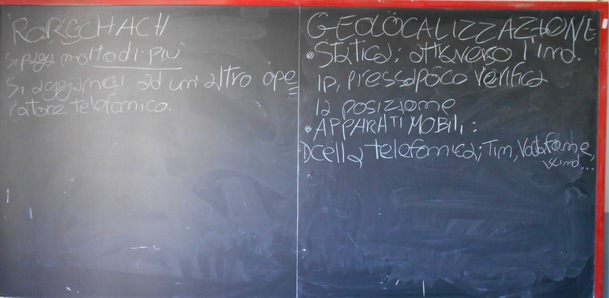 RORSCHACH
si paga molto di più
Si aggancia ad un altro ope
ratore telefonico.
GEOLOCALIZZAZIONE
• Statica: attraverso l'ind.
IP, pressapoco verifica
la posizione
• APPARATI MOBILI:
cella telefonica: Tim, Vodafone,
wind...